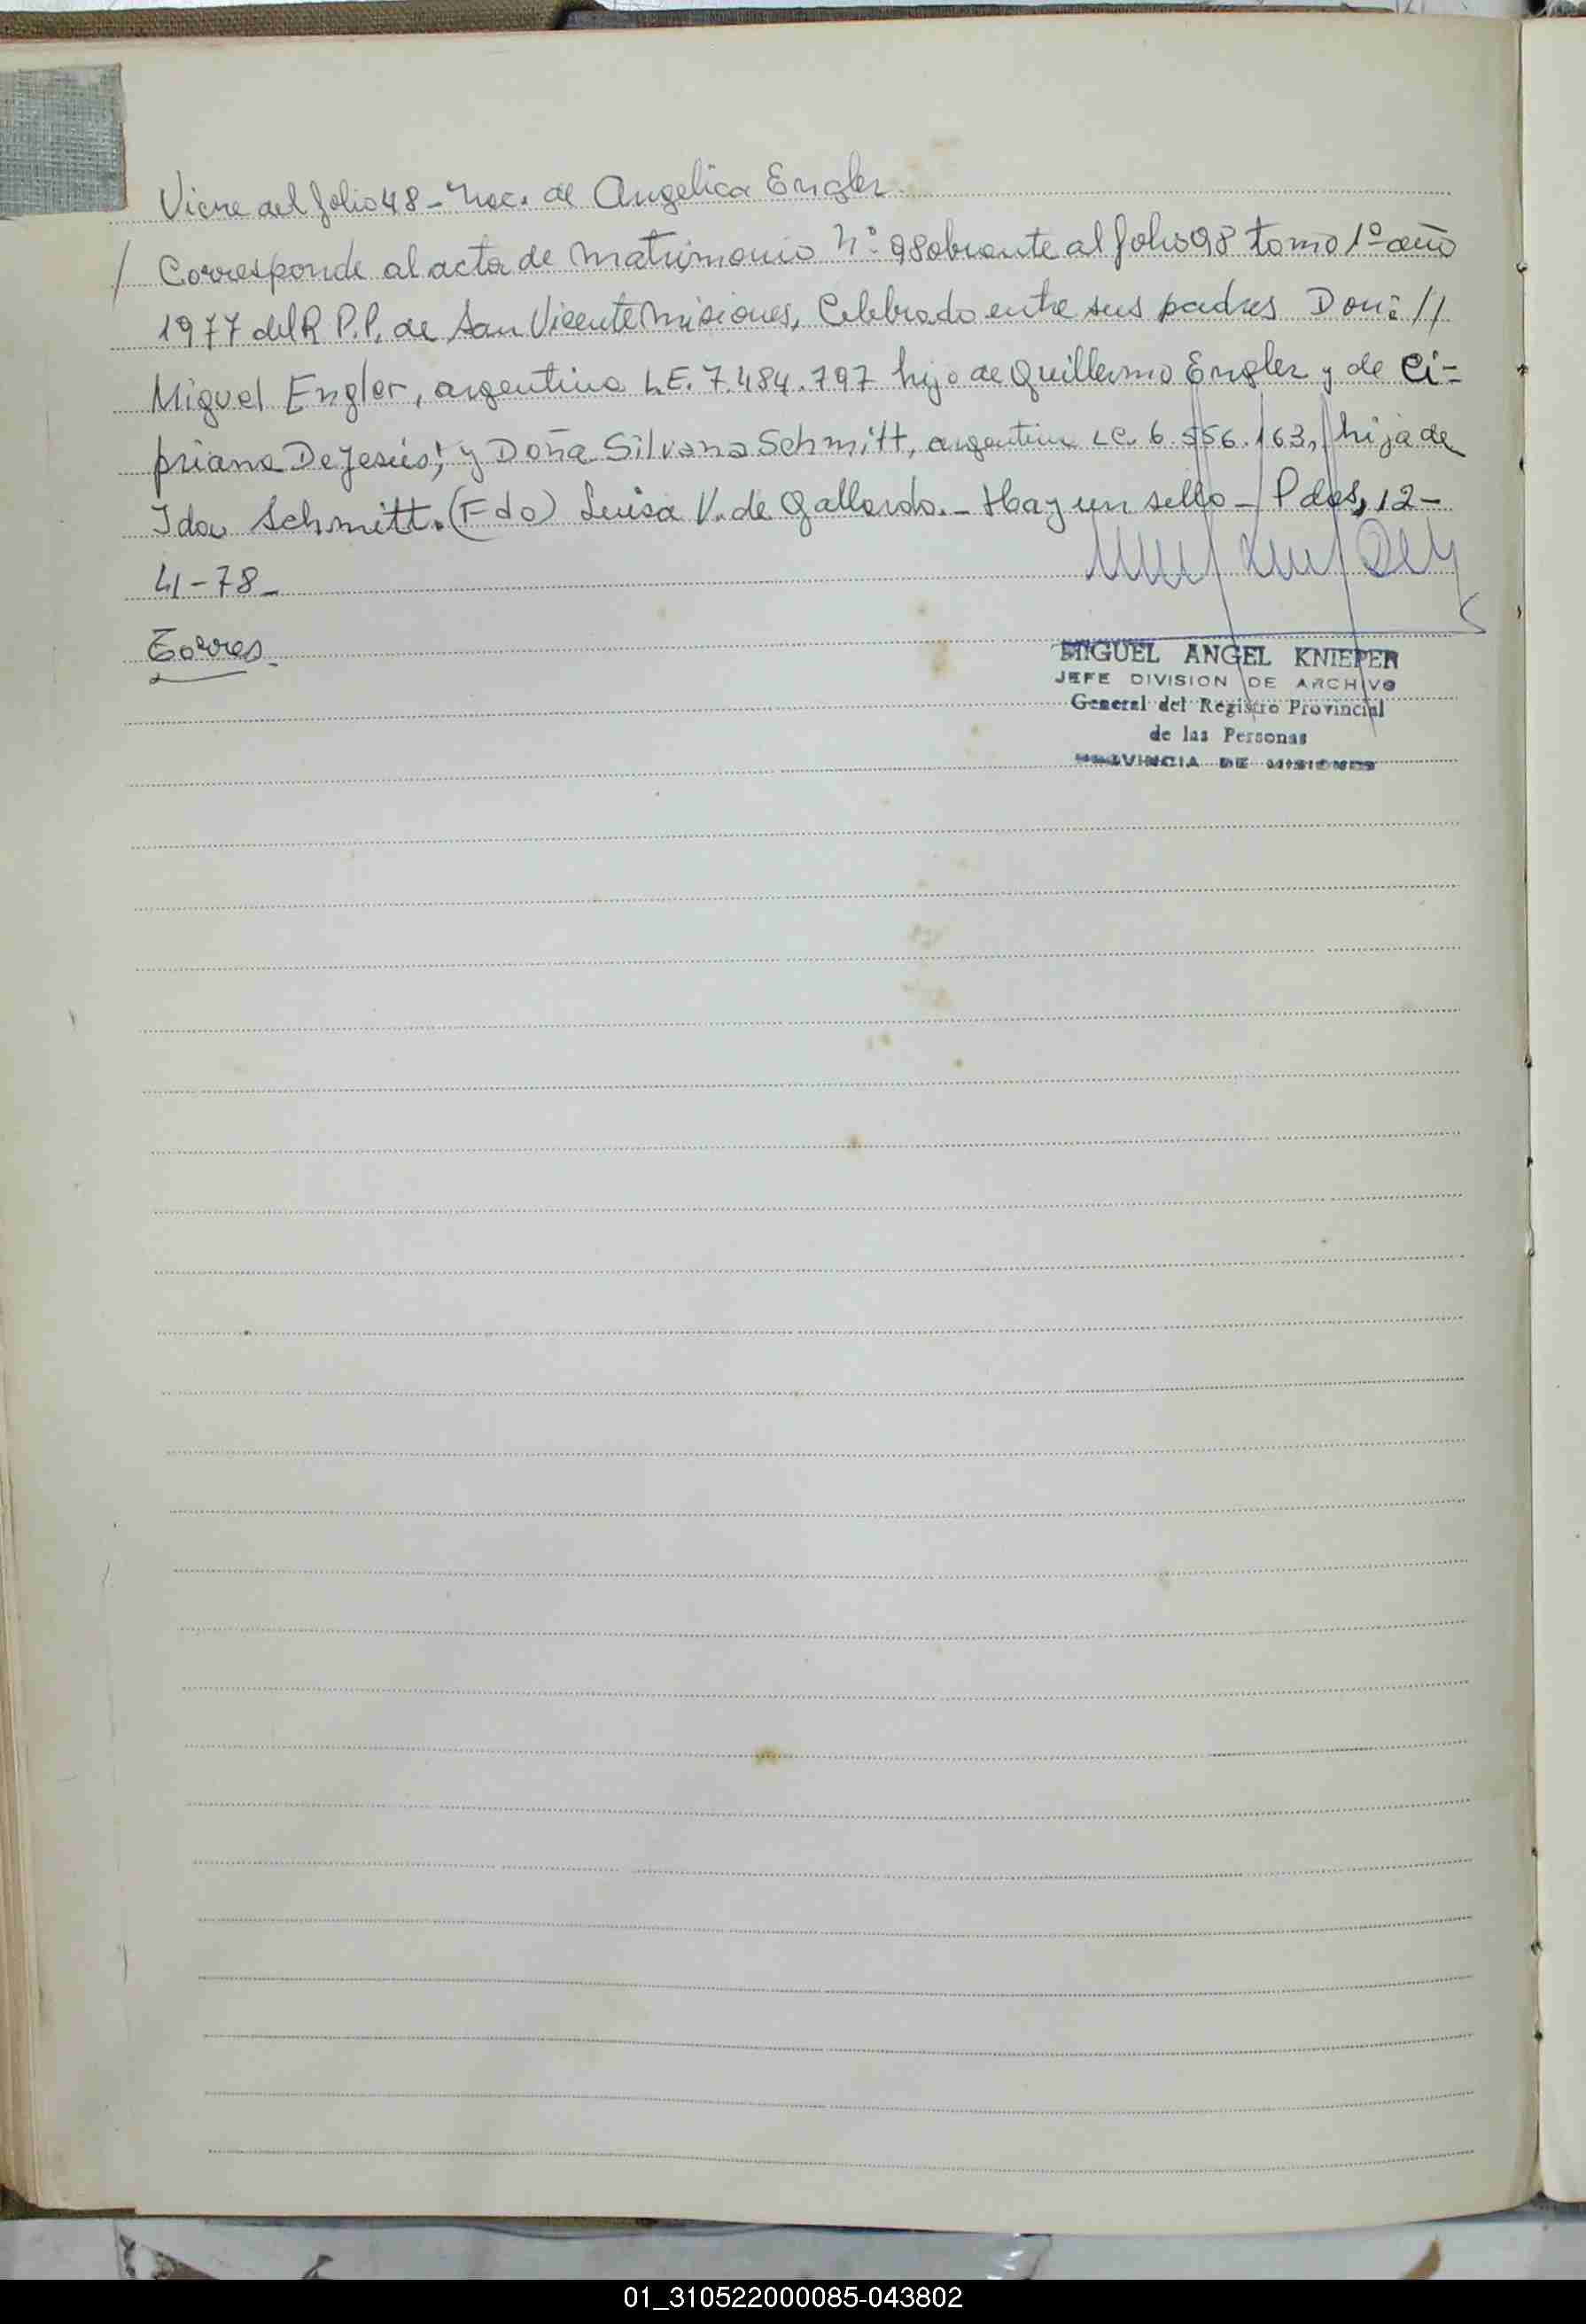 Viene del folio 48 - Nac. de Angelica Engler
/ Corresponde al acta de matrimonio N° 98 obrante al folio 98 tomo 1º año
1977 del R P.P. de San Vicente Misiones, Celebrado entre sus padres Don: //
Miguel Engler, argentino L.E. 7.484.797 hijo de Guillermo Engler y de Ci-
priana De Jesús; y Doña Silvana Schmitt, argentina LC. 6.556.163, hija de
Ida Schmitt. (Fdo) Luisa V. de Gallardo. - Hay un sello - Pdas, 12-
4-78-
Torres
MIGUEL ANGEL KNIEPER
JEFE DIVISION DE ARCHIVO
General del Registro Provincial
de las Personas
PROVINCIA DE MISIONES
01_310522000085-043802